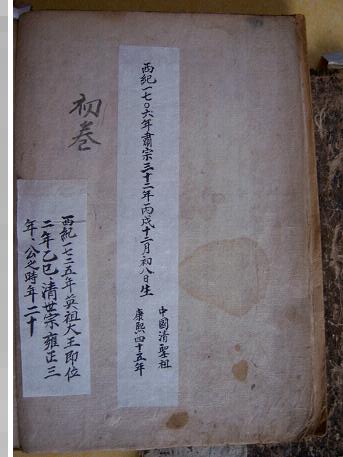 西紀一七〇六年肅宗三十二年丙戌十二月初八日生
中國清聖祖
康熙四十五年
初卷
西紀一七二五年英祖大王即位
二年乙巳、清世宗雍正三
年、公之時年二十